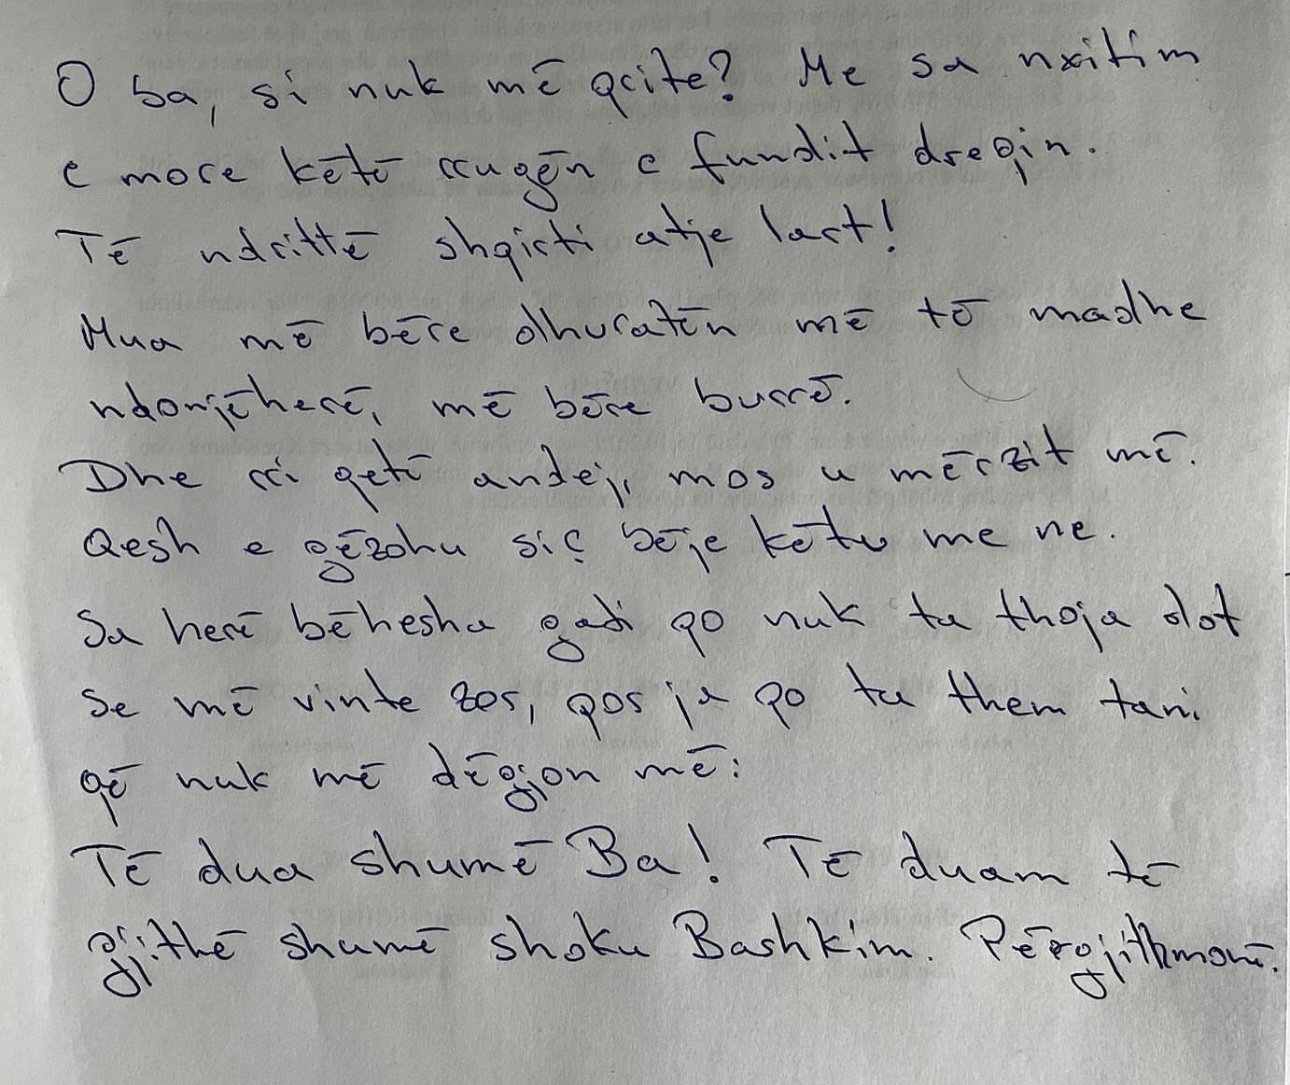 O ba, si nuk më prite? Me sa nxitim
e more këtë rrugën e fundit dreqin.
Të ndrittë shpirti atje lart!
Mua më bëre dhuratën më të madhe
ndonjëherë, më bëre burrë.
Dhe rri qetë andej, mos u mërzit më.
Qesh e gëzohu siç bëje këtu me ne.
Sa herë bëhesha gadi po nuk ta thoja dot
se më vinte zor, por ja po ta them tani
që nuk më dëgjon më:
Të dua shumë Ba! Të duam të
gjithë shumë shoku Bashkim. Përgjithmonë.